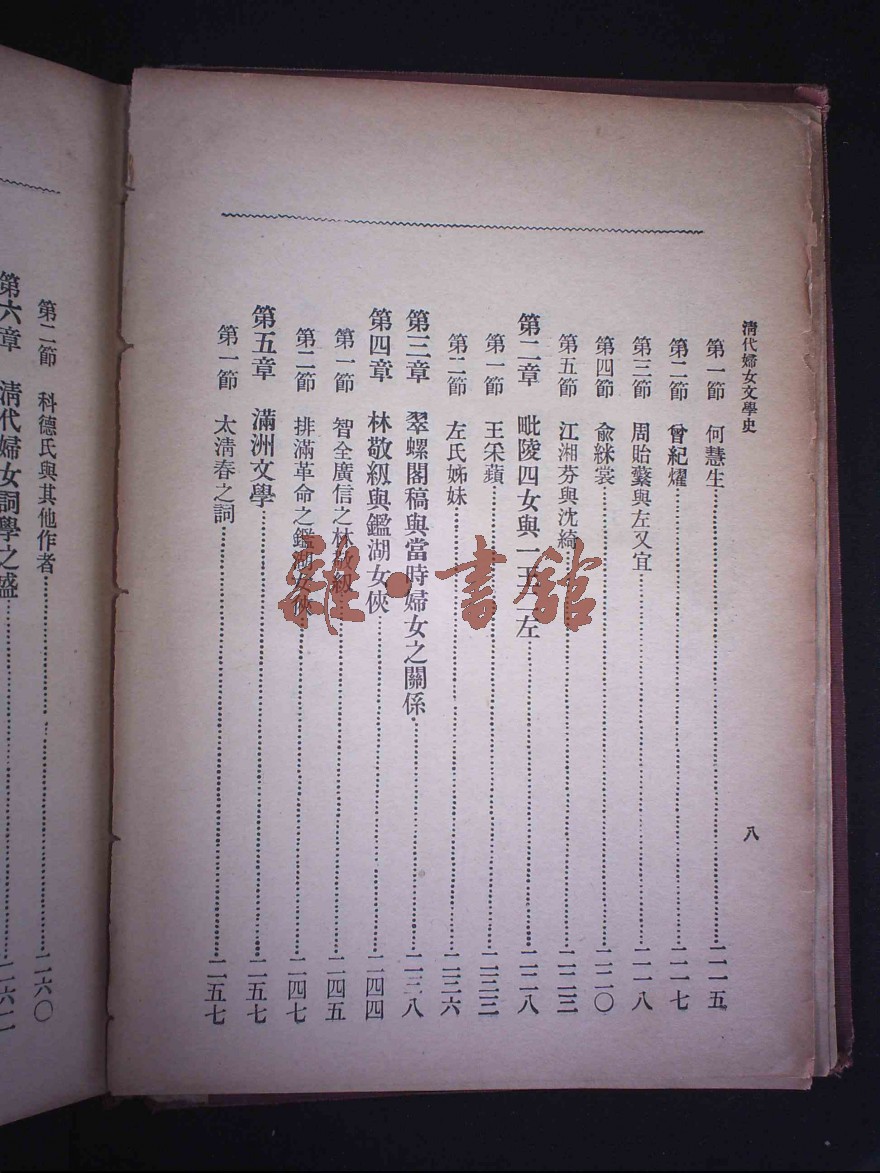 清代婦女文學史
八
第一節　何慧生……二一五
第二節　曾紀燿……二一七
第三節　周貽蘩與左又宜……二一八
第四節　兪綝裳……二二〇
第五節　江湘芬與沈綺……二二三
第二章　毗陵四女與一王二左……二二八
第一節　王采蘋……二三三
第二節　左氏姊妹……二三六
第三章　翠螺閣稿與當時婦女之關係……二三八
第四章　林敬紉與鑑湖女俠……二四四
第一節　智全廣信之林敬紉……二四五
第二節　排滿革命之鑑湖女俠……二四七
第五章　滿洲文學……二五七
第一節　太清春之詞……二五七
第二節　科德氏與其他作者……二六〇
第六章　清代婦女詞學之盛……二六二
雜·書館